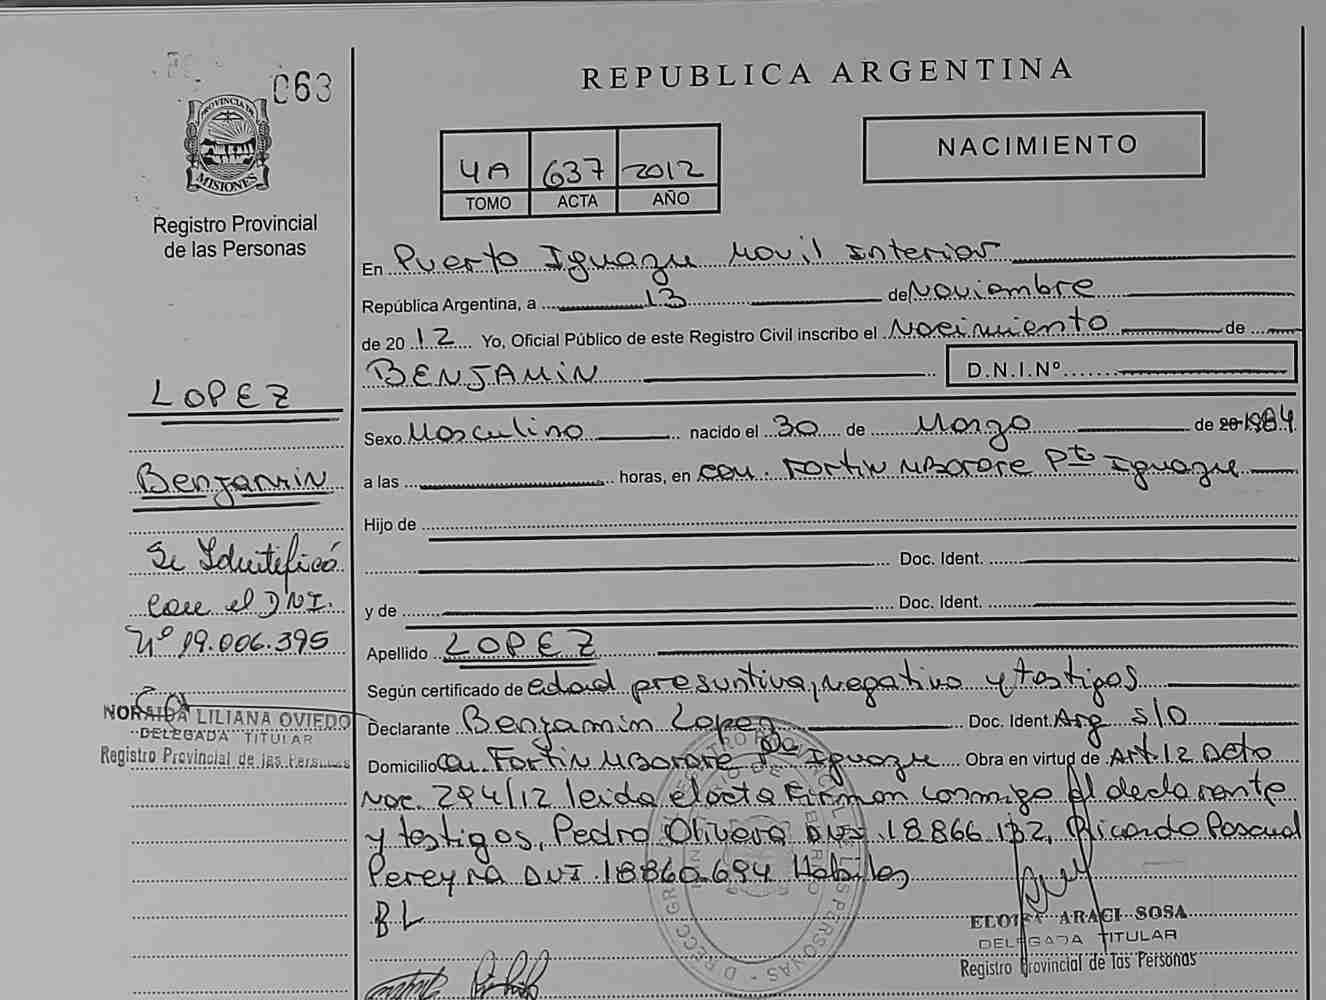 063
PROVINCIA DE
MISIONES
Registro Provincial
de las Personas
LOPEZ
Benjamin
Se Identificó
con el DNI.
Nº 19.006.395
NORAIDA LILIANA OVIEDO
DELEGADA TITULAR
Registro Provincial de las Personas
REPUBLICA ARGENTINA
4A 637 2012
TOMO ACTA AÑO
NACIMIENTO
En Puerto Iguazu Movil Interior
República Argentina, a 13 de Noviembre
de 2012 Yo, Oficial Público de este Registro Civil inscribo el Nacimiento de
BENJAMIN D.N.I.Nº
Sexo Masculino nacido el 30 de Marzo de 20 1984
a las horas, en com. Fortin MBorore Pto Iguazu
Hijo de
Doc. Ident.
y de Doc. Ident.
Apellido LOPEZ
Según certificado de edad presuntiva, negativo y testigos
Declarante Benjamin Lopez Doc. Ident. Arg S/D
Domicilio Fortin MBorore Pto Iguazu Obra en virtud de Art. 12 Dcto
Nac. 294/12 leida el acta Firman conmigo el declarante
y testigos, Pedro Olivera DNI 18.866.132, Ricardo Pascual
Pereyra DNI 18860.694 Habiles
BL
ELOISA ARACI SOSA
DELEGADA TITULAR
Registro Provincial de las Personas